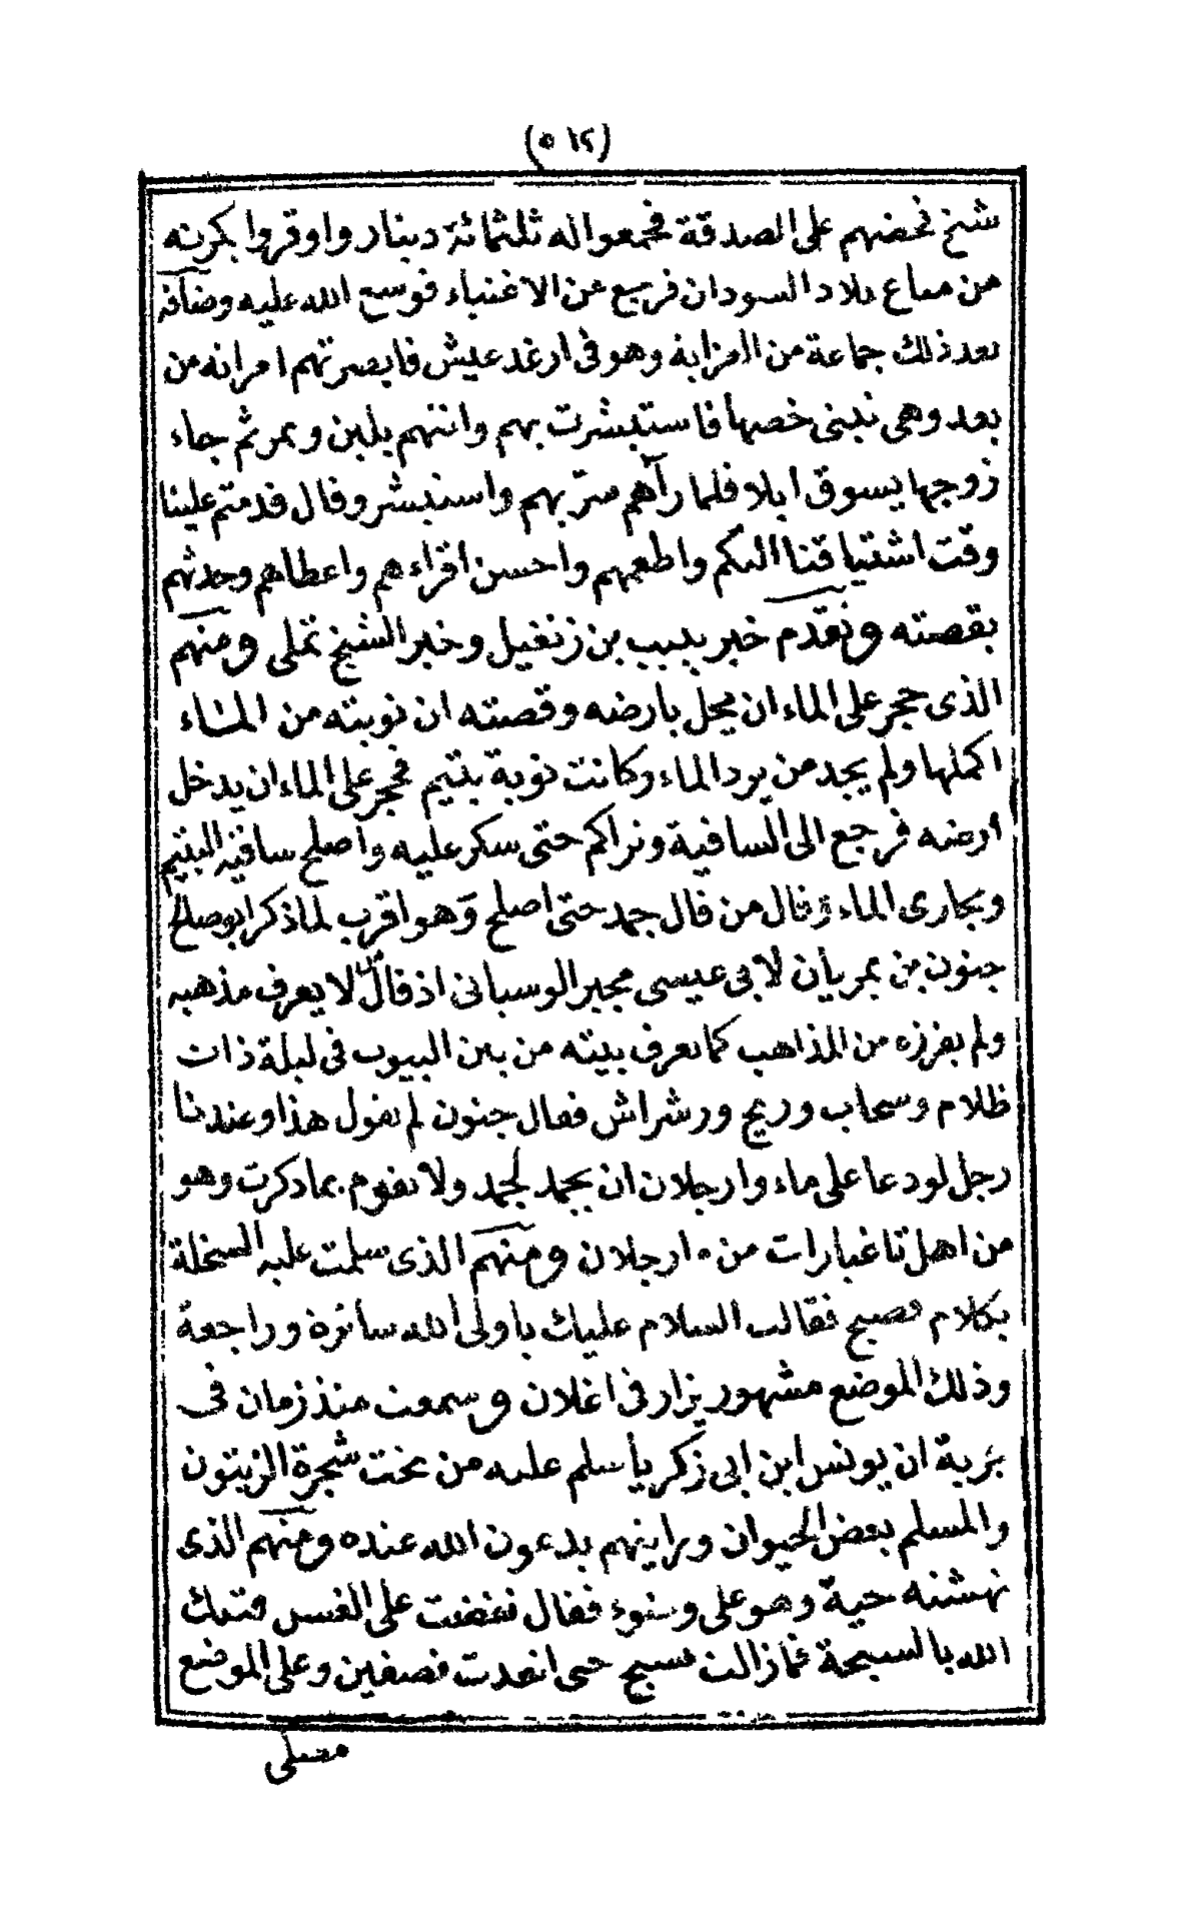 (٥١٢)
شيخ فحضهم على الصدقة فجمعوا له ثلثمائة دينار واوقروا بكرته
من متاع بلاد السودان فرجع من الاغنياء فوسع الله عليه وضافه
بعد ذلك جماعة من المزابة وهو فى ارغد عيش فابصرتهم امراته من
بعد وهى تبنى خصها فاستبشرت بهم واتتهم بلبن وبمر ثم جاء
زوجها يسوق ابلا فلما رآهم سرّ بهم واستبشر وقال قدمتم علينا
وقت اشتياقنا اليكم واطعمهم واحسن اقراءهم واعطاهم وحدثهم
بقصته وتقدم خبر بن زنغيل وخبر الشيخ تملى ومنهم
الذى حجر على الماء ان يحل بارضه وقصته ان نوبته من الماء
اكملها ولم يجد من يرد الماء وكانت نوبة يتيم فحجر على الماء ان يدخل
ارضه فرجع الى الساقية وتراكم حتى سكر عليه واصلح ساقية اليتيم
ومجارى الماء وقال من قال جمد حتى اصلح وهو اقرب لما ذكر ابو صالح
جنون بن يمريان لابى عيسى مجبر الوسيانى اذ قال من لا يعرف مذهبه
ولم يفرزه من المذاهب كما يعرف بيته من بين البيوت فى ليلة ذات
ظلام وسحاب وريح ورشراش فقال جنون لم تقول هذا وعندنا
رجل لو دعا على ماء وارجلان ان يجمد لجمد ولا يقوم بما ذكرت وهو
من اهل تاغيارات من وارجلان ومنهم الذى سلمت عليه السخلة
بكلام فصيح فقالت السلام عليك يا ولى الله سائرة وراجعة
وذلك الموضع مشهور يزار فى اغلان وسمعت منذ زمان فى
بريّة ان يونس ابن ابى زكرياء سلم عليه من تحت شجرة الزيتون
والمسلم بعض الحيوان ورايتهم يدعون الله عنده ومنهم الذى
نهشته حية وهو على وضوء فقال نقضت على الغسل
الله بالسبحة فما زالت تسبح حتى انقدت نصفين وعلى الموضع
مصلى